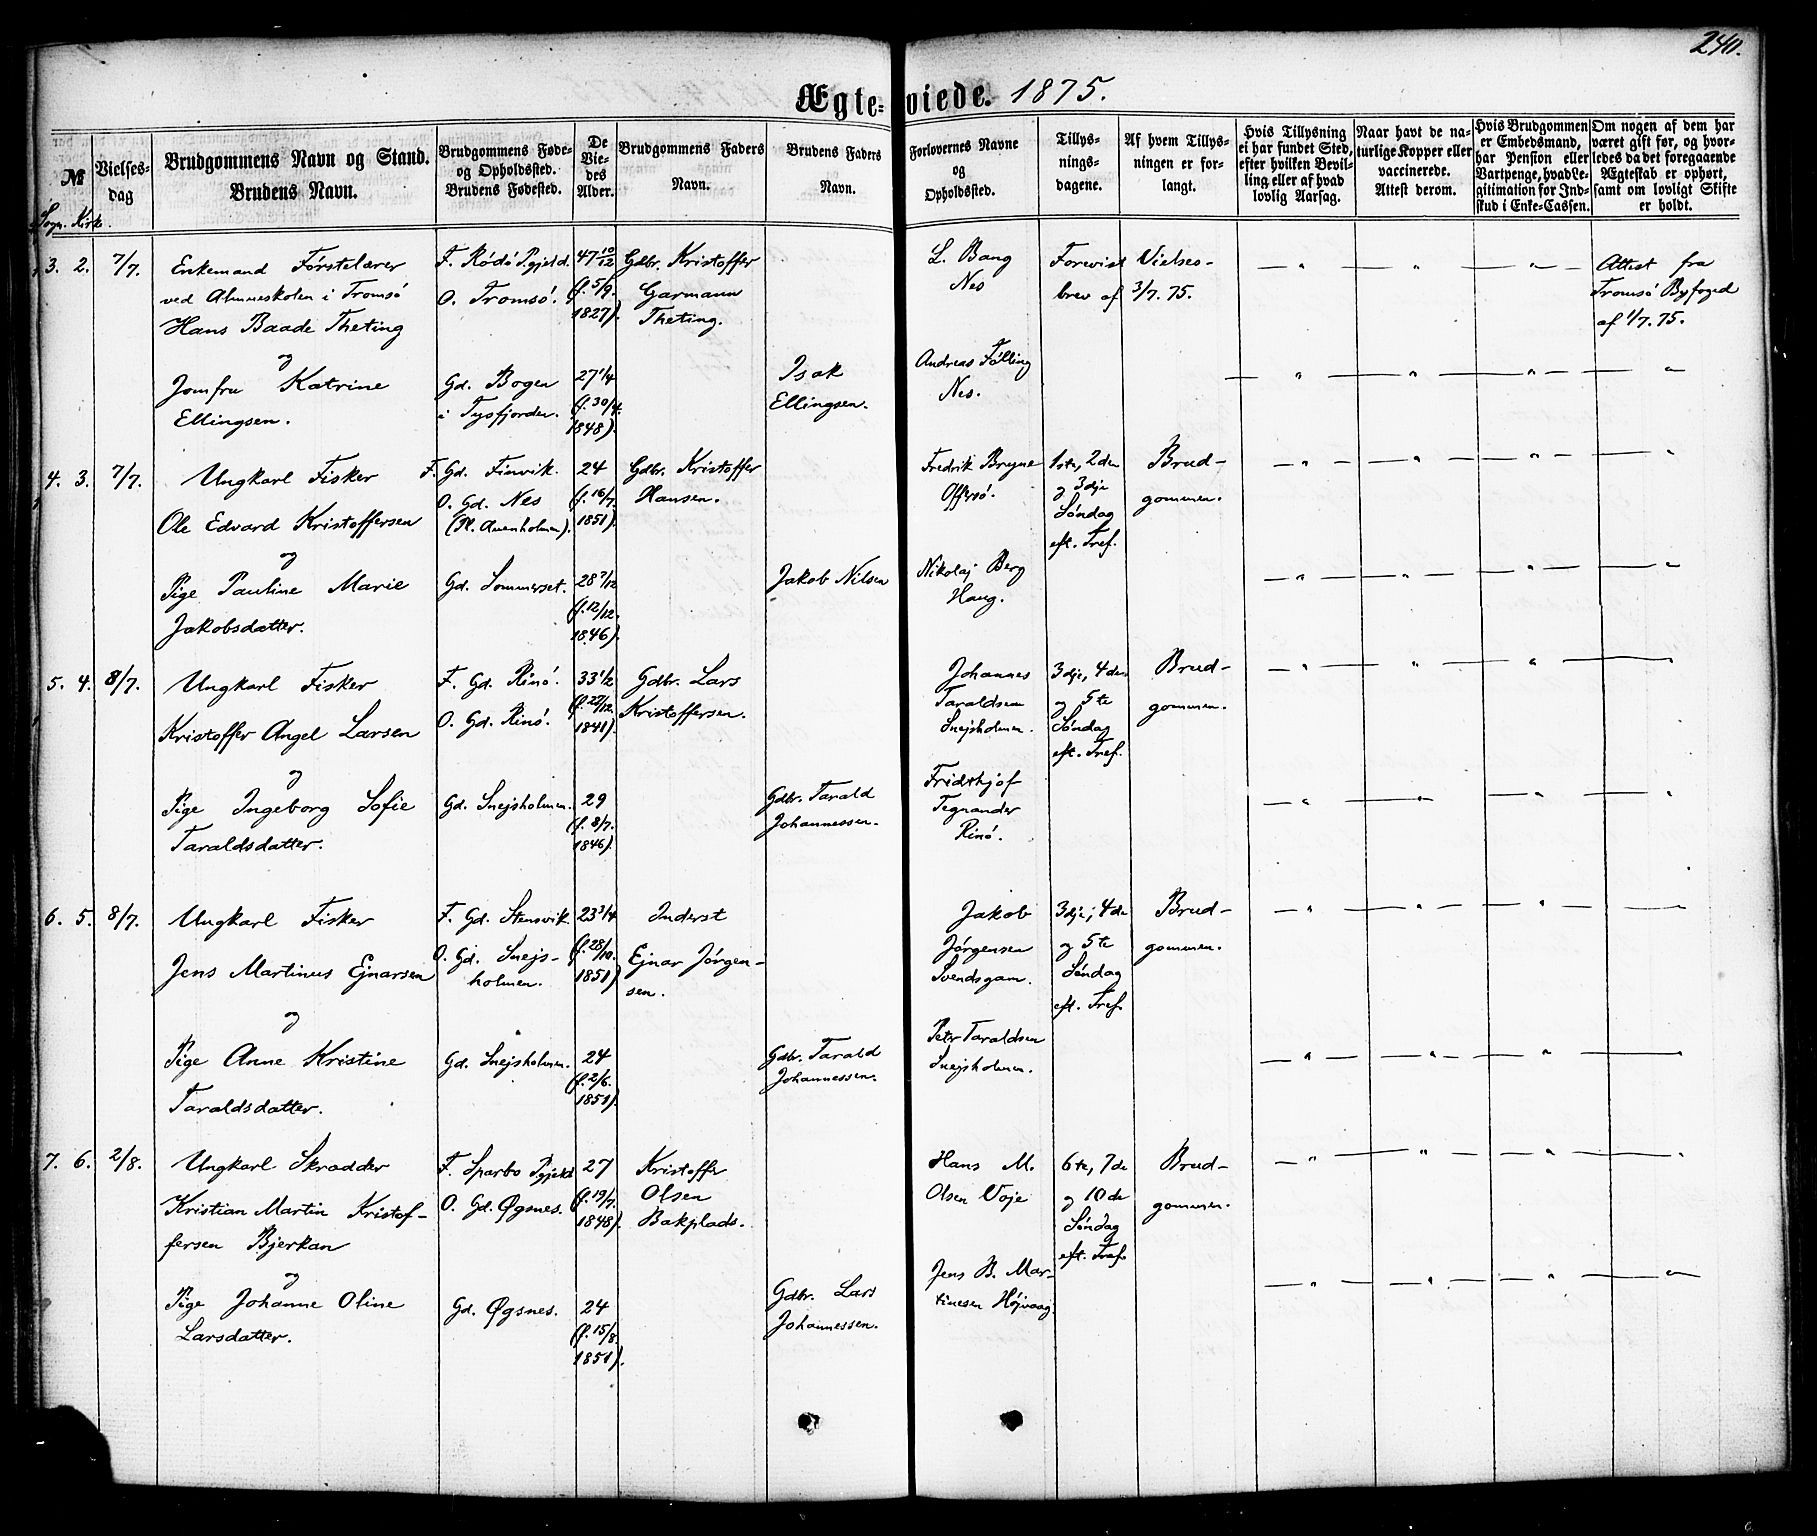 240.
Ægte-viede. 1875.
№
Sogn. Kirk.
Vielses-
dag
Brudgommens Navn og Stand.
Brudens Navn.
Brudgommens Føde-
og Opholdssted.
Brudens Fødested.
De
Vie-
des
Alder.
Brudgommens Faders
Navn.
Brudens Faders
Navn.
Forlovernes Navne
og
Opholdssted.
Tillys-
nings-
dagene.
Af hvem Tillys-
ningen er for-
langt.
Hvis Tillysning
ei har fundet Sted,
efter hvilken Bevil-
ling eller af hvad
lovlig Aarsag.
Naar havt de na-
turlige Kopper eller
vaccinerede.
Attest derom.
Hvis Brudgommen
er Embedsmand,
har Pension eller
Vartpenge, hvad Le-
gitimation for Ind-
skud i Enke-Cassen.
Om nogen af dem har
været gift før, og hvor-
ledes da det foregaaende
Ægteskab er ophørt,
samt om lovligt Skifte
er holdt.
3. 2. 7/7.
Enkemand Førstelærer
ved Almueskolen i Tromsø
Hans Baade Theting
og
Jomfru Katrine
Ellingsen.
F. Rødø Pgjeld.
O. Tromsø.
Gd. Bogen
i Tysfjorden.
47 10/12
(f. 5/9.
1827).
27 1/4
(f. 30/4.
1848).
Gdbr. Kristoffer
Garmann
Theting.
Isak
Ellingsen.
L. Bang
Nes
Andreas Fölling
Nes.
Forevist Vielses-
brev af 3/7. 75.
Attest fra
Tromsø Byfoged
af 1/7. 75.
4. 3. 7/7.
Ungkarl Fisker
Ole Edvard Kristoffersen
og
Pige Pauline Marie
Jakobsdatter.
F. Gd. Finvik.
O. Gd. Nes
Gd. Sommerset.
24
(f. 16/7.
1851).
28 7/12
(f. 12/12.
1846).
Gdbr. Kristoffer
Hansen.
Jakob Nilsen
Fredrik Bryne
Offersø.
Nikolaj Berg
Haug.
1ste, 2den
og 3dje
Søndag
eft. Tref.
Brud-
gommen.
5. 4. 8/7.
Ungkarl Fisker
Kristoffer Angel Larsen
og
Pige Ingeborg Sofie
Taraldsdatter.
F. Gd. Rinø.
O. Gd. Rinø.
Gd. Snejsholmen.
33 1/2
(f. 27/12.
1841).
29
(f. 8/7.
1846).
Gdbr. Lars
Kristoffersen.
Gdbr. Tarald
Johannessen.
Johannes
Taraldsen
Snejsholmen.
Fridthjof
Tegnander
Rinø.
3dje, 4den
og 5te
Søndag
eft. Tref.
Brud-
gommen.
6. 5. 8/7.
Ungkarl Fisker
Jens Martinus Ejnarsen
og
Pige Anne Kristine
Taraldsdatter.
F. Gd. Stensvik
O. Gd. Snejs-
holmen.
Gd. Snejsholmen.
23 3/4
(f. 28/10.
1851)
24
(f. 2/6.
1851).
Inderst
Ejnar Jørgen-
sen.
Gdbr. Tarald
Johannessen.
Jakob
Jørgensen
Svendsgam.
Peter Taraldsen
Snejsholmen.
3dje, 4de
og 5te
Søndag
eft. Tref.
Brud-
gommen.
7. 6. 2/8.
Ungkarl Skrædder
Kristian Martin Kristof-
fersen Bjerkan
og
Pige Johanne Oline
Larsdatter.
F. Sparbo Pgjeld
O. Gd. Øgsnes.
Gd. Øgsnes.
27
(f. 19/7.
1848).
24
(f. 15/8.
1851).
Kristoffer
Olsen
Bakplads.
Gdbr. Lars
Johannessen.
Hans M.
Olsen Voje
Jens B. Mar-
tinesen Højvaag
6te, 7de
og 10de
Søndag
eft. Tref.
Brud-
gommen.